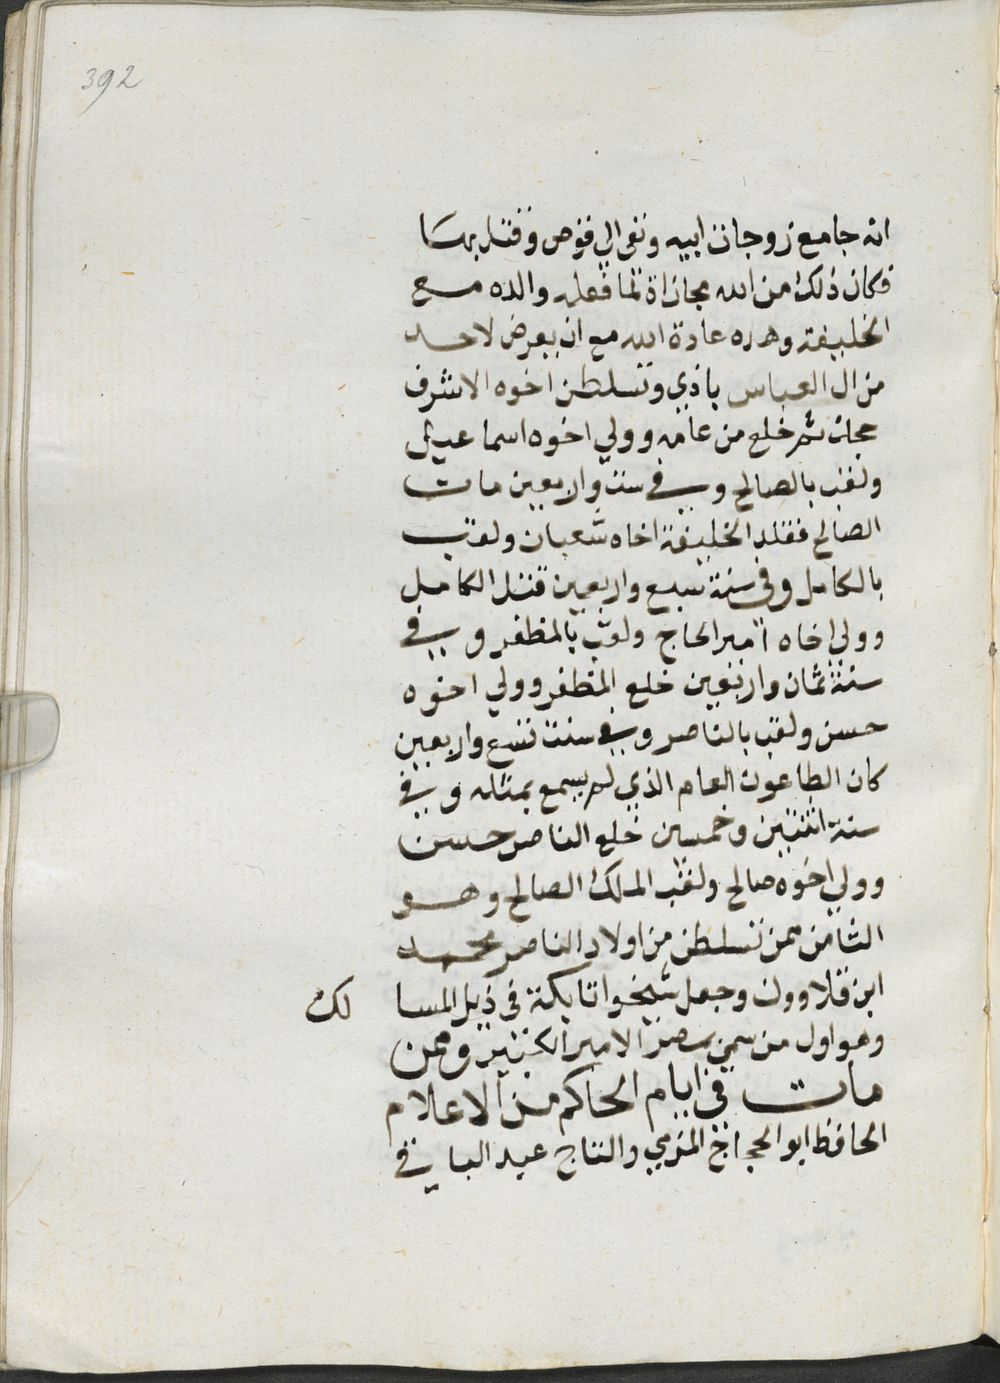 392
انه جامع زوجات ابيه ونفى الي قوص وقتل بها
فكان ذلك من الله مجازاة لما فعله والده مع
الخليفة وهذه عادة الله مع ان يعرض لاحد
من ال العباس باذي وتسلطن اخوه الاشرف
كجك ثم خلع من عامه وولي اخوه اسماعيل
ولقب بالصالح وفي سنت واربعين مات
الصالح فقلد الخليفة اخاه شعبان ولقب
بالكامل وفي سنة سبع واربعين قتل الكامل
وولي اخاه امير الحاج ولقب بالمظفر وفي
سنة ثمان واربعين خلع المظفر وولي اخوه
حسن ولقب بالناصر وفي سنت تسع واربعين
كان الطاعون العام الذي لم يسمع بمثله وفي
سنة اثنتين وخمسين خلع الناصر حسن
وولي اخوه صالح ولقب الملك الصالح وهو
الثامن ممن تسلطن من اولاد الناصر محمد
ابن قلاوون وجعل شيخو اتابكة في ذيل المسا لك
وهو اول من سمي بمصر الامير الكبير وممن
مات في ايام الحاكم من الاعلام
الحافظ ابو الحجاج المزي والتاج عبد الباقي